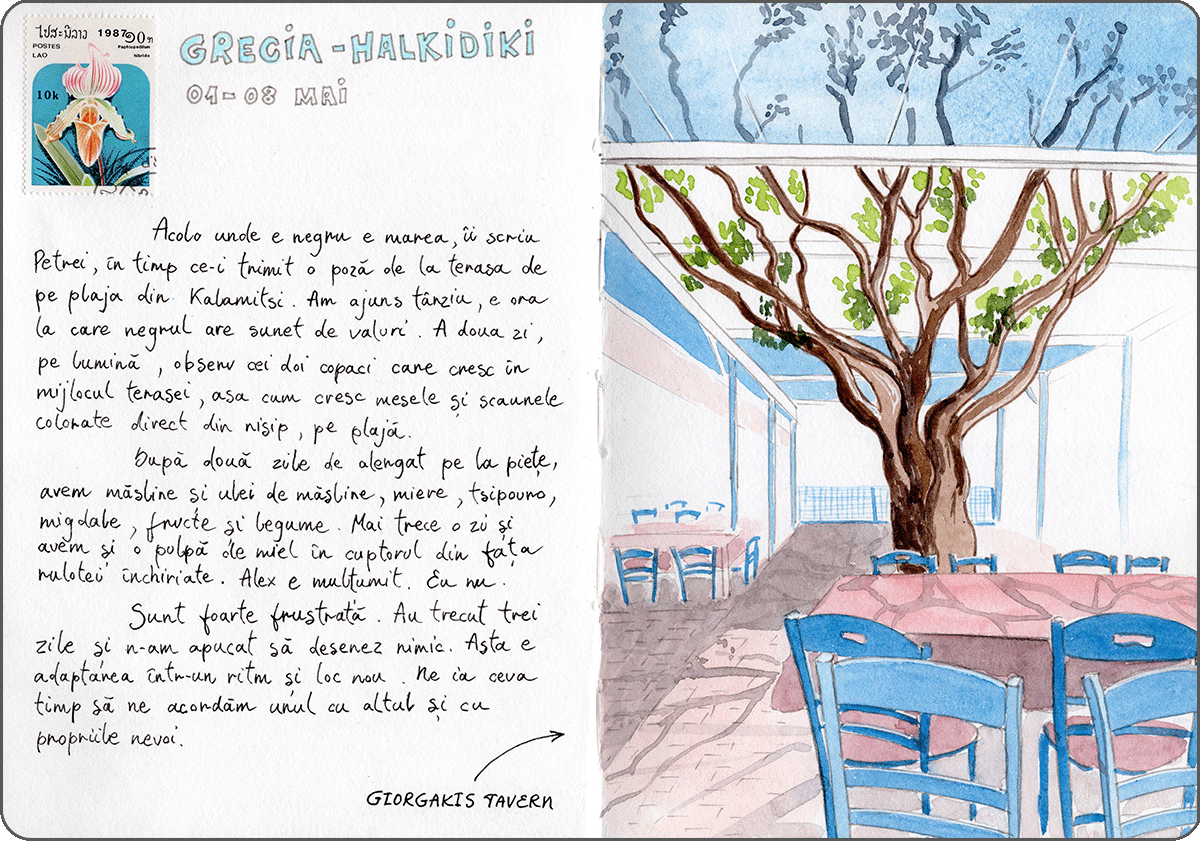 ໄປສະນີລາວ 1987 ໑໐ກ
POSTES
LAO
Paphiopedilum
hibrido
10k
GRECIA - HALKIDIKI
01-08 MAI
Acolo unde e negru e marea, îi scriu
Petrei, în timp ce-i trimit o poză de la terasa de
pe plaja din Kalamitsi. Am ajuns târziu, e ora
la care negrul are sunet de valuri. A doua zi,
pe lumină, observ cei doi copaci care cresc în
mijlocul terasei, asa cum cresc mesele și scaunele
colorate direct din nisip, pe plajă.
După două zile de alergat pe la piețe,
avem măsline si ulei de măsline, miere, tsipouro,
migdale, fructe și legume. Mai trece o zi și
avem și o pulpă de miel în cuptorul din fața
rulotei închiriate. Alex e mulțumit. Eu nu.
Sunt foarte frustrată. Au trecut trei
zile și n-am apucat să desenez nimic. Asta e
adaptarea într-un ritm si loc nou. Ne ia ceva
timp să ne acordăm unul cu altul și cu
propriile nevoi.
GIORGAKIS TAVERN